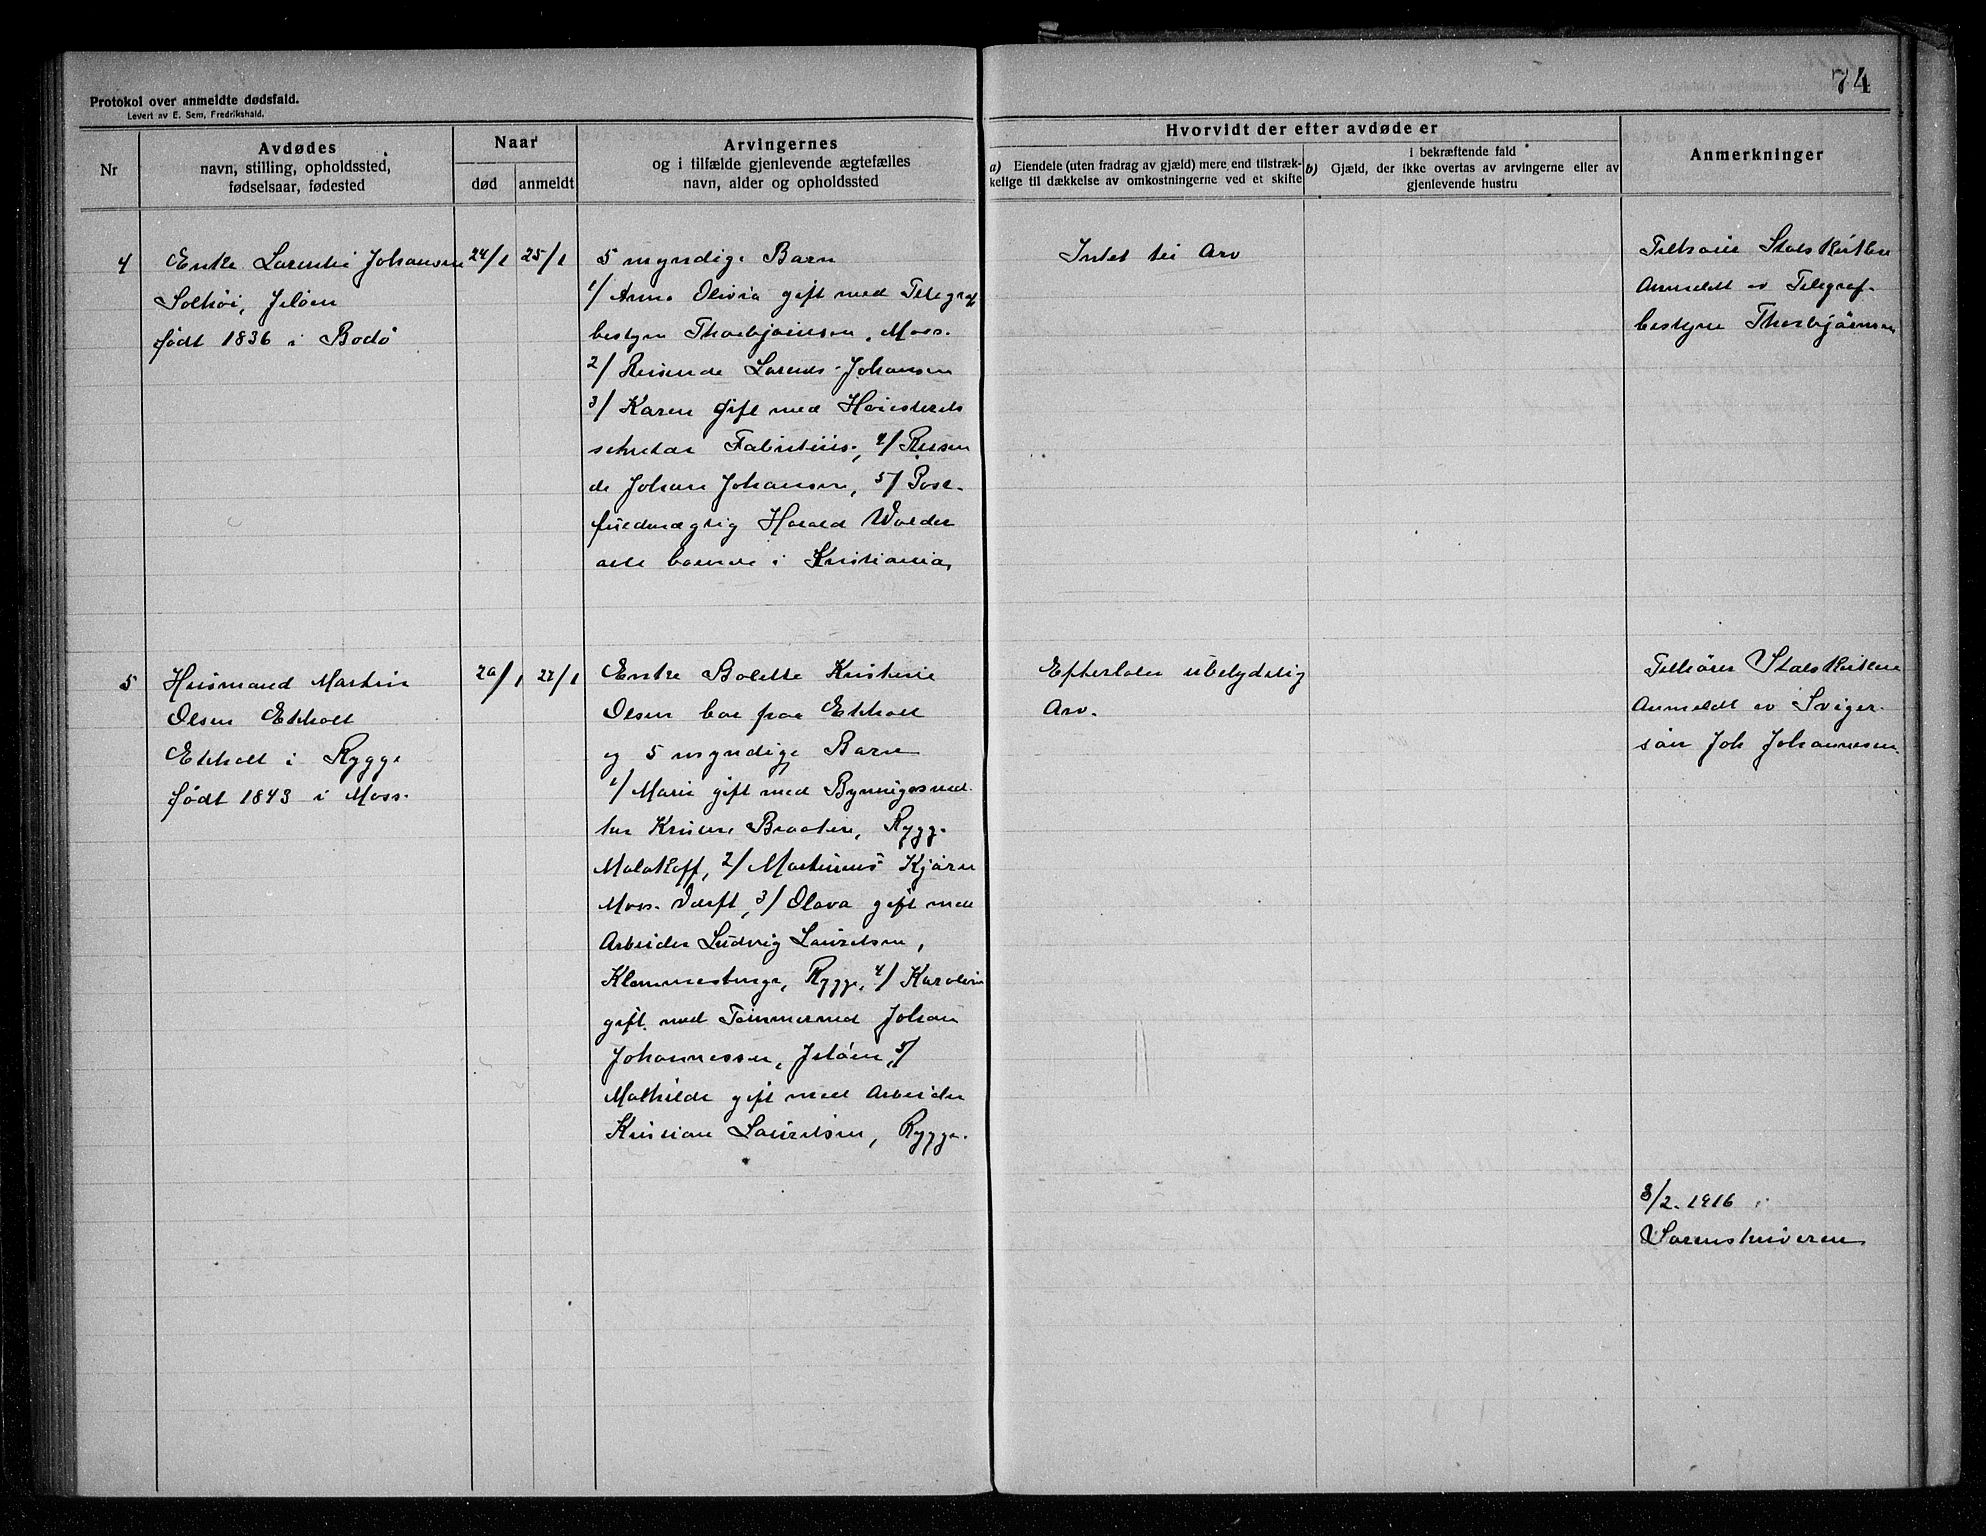 74
Protokol over anmeldte dødsfald.
Levert av E. Sem, Fredrikshald.
Nr
Avdødes
navn, stilling, opholdssted,
fødselsaar, fødested
Naar
død
anmeldt
Arvingernes
og i tilfælde gjenlevende ægtefælles
navn, alder og opholdssted
Hvorvidt der efter avdøde er
a) Eiendele (uten fradrag av gjæld) mere end tilstræk-
kelige til dækkelse av omkostningerne ved et skifte
I bekræftende fald
b) Gjæld, der ikke overtas av arvingerne eller av
gjenlevende hustru
Anmerkninger
4
Enke Lorentse Johansen
Solhøi, Jeløen
født 1836 i Bodø
24/1
25/1
5 myndige Barn
1/ Anna Olivia gift med Telegraf
bestyrer Thorbjørnsen, Moss.
2/ Reisende Lorends Johansen
3/ Karen gift med Høiesterets
sekretær Fabritius, 4/ Reisen
de Johan Johansen, 5/ Post-
fuldmægtig Harald Wolder
alle boende i Kristiania,
Intet til Arv
Tilhører Statskirken
Anmeldt av Telegraf-
bestyrer Thorbjørnsen
5
Husmand Martin
Olsen Ekholt
Ekholt i Rygge
født 1843 i Moss.
20/1
22/1
Enke Bolette Kristine
Olsen bor paa Ekholt
og 5 myndige Barn
1/ Marie gift med Bygningssned
ker Braaten, Rygge
Malakoff, 2/ Martinius Kjærn
Moss Værft, 3/ Olava gift med
Arbeider Ludvig Lauritsen,
Klommestenge, Rygge, 4/ Karoline
gift med Tømmermed Johan
Johannessen, Jeløen, 5/
Mathilde gift med Arbeider
Kristian Lauritsen, Rygge.
Efterlater ubetydelig
Arv.
Tilhører Statskirken
Anmeldt av Sviger-
søn Joh Johannesen
3/2. 1916
Sorenskriveren